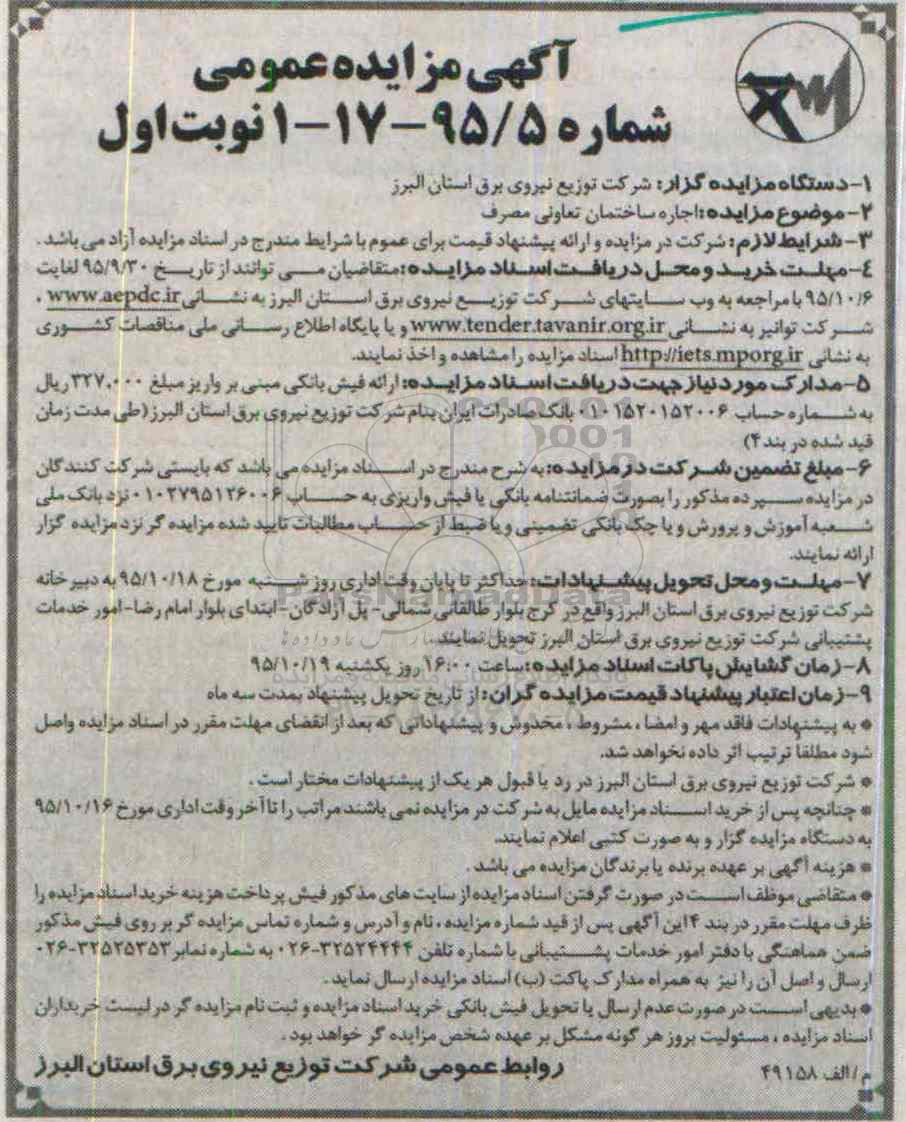 آگهی مزایده عمومی
شماره ۹۵/۵-۱۷-۱ نوبت اول
۱-دستگاه مزایده گزار: شرکت توزیع نیروی برق استان البرز
۲-موضوع مزایده:اجاره ساختمان تعاونی مصرف
۳-شرایط لازم: شرکت در مزایده و ارائه پیشنهاد قیمت برای عموم با شرایط مندرج در اسناد مزایده آزاد می باشد.
٤-مهلت خرید و محل دریافت اسناد مزایده:متقاضیان می توانند از تاریخ ۹۵/۹/۳۰ لغایت
۹۵/۱۰/۶ با مراجعه به وب سایتهای شرکت توزیع نیروی برق استان البرز به نشانی www.aepdc.ir ،
شرکت توانیر به نشانی www.tender.tavanir.org.ir و یا پایگاه اطلاع رسانی ملی مناقصات کشوری
به نشانی http://iets.mporg.ir اسناد مزایده را مشاهده و اخذ نمایند.
۵-مدارک مورد نیاز جهت دریافت اسناد مزایده: ارائه فیش بانکی مبنی بر واریز مبلغ ۳۲۷,۰۰۰ ریال
به شماره حساب ۰۱۰۱۵۲۰۱۵۲۰۰۶ بانک صادرات ایران بنام شرکت توزیع نیروی برق استان البرز (طی مدت زمان
قید شده در بند ۴)
۶-مبلغ تضمین شرکت در مزایده: به شرح مندرج در اسناد مزایده می باشد که بایستی شرکت کنندگان
در مزایده سپرده مذکور را بصورت ضمانتنامه بانکی یا فیش واریزی به حساب ۰۱۰۲۷۹۵۱۲۶۰۰۶ نزد بانک ملی
شعبه آموزش و پرورش و یا چک بانکی تضمینی و یا ضبط از حساب مطالبات تایید شده مزایده گر نزد مزایده گزار
ارائه نمایند.
۷-مهلت و محل تحویل پیشنهادات: حداکثر تا پایان وقت اداری روز شنبه مورخ ۹۵/۱۰/۱۸ به دبیرخانه
شرکت توزیع نیروی برق استان البرز واقع در کرج بلوار طالقانی شمالی- پل آزادگان-ابتدای بلوار امام رضا-امور خدمات
پشتیبانی شرکت توزیع نیروی برق استان البرز تحویل نمایند.
۸-زمان گشایش پاکات اسناد مزایده:ساعت ۱۶:۰۰ روز یکشنبه ۹۵/۱۰/۱۹
۹-زمان اعتبار پیشنهاد قیمت مزایده گران: از تاریخ تحویل پیشنهاد بمدت سه ماه
* به پیشنهادات فاقد مهر و امضا ، مشروط ، مخدوش و پیشنهاداتی که بعد از انقضای مهلت مقرر در اسناد مزایده واصل
شود مطلقاً ترتیب اثر داده نخواهد شد.
* شرکت توزیع نیروی برق استان البرز در رد یا قبول هر یک از پیشنهادات مختار است .
* چنانچه پس از خرید اسناد مزایده مایل به شرکت در مزایده نمی باشند مراتب را تا آخر وقت اداری مورخ ۹۵/۱۰/۱۶
به دستگاه مزایده گزار و به صورت کتبی اعلام نمایند.
* هزینه آگهی بر عهده برنده یا برندگان مزایده می باشد .
* متقاضی موظف است در صورت گرفتن اسناد مزایده از سایت های مذکور فیش پرداخت هزینه خرید اسناد مزایده را
ظرف مهلت مقرر در بند ۴ این آگهی پس از قید شماره مزایده ، نام و آدرس و شماره تماس مزایده گر بر روی فیش مذکور
ضمن هماهنگی با دفتر امور خدمات پشتیبانی با شماره تلفن ۳۲۵۲۴۴۴۴-۰۲۶ به شماره نمابر ۳۲۵۲۵۳۵۳-۰۲۶
ارسال و اصل آن را نیز به همراه مدارک پاکت (ب) اسناد مزایده ارسال نماید .
* بدیهی است در صورت عدم ارسال یا تحویل فیش بانکی خرید اسناد مزایده و ثبت نام مزایده گر در لیست خریداران
اسناد مزایده ، مسئولیت بروز هر گونه مشکل بر عهده شخص مزایده گر خواهد بود .
م / الف ۴۹۱۵۸ روابط عمومی شرکت توزیع نیروی برق استان البرز
ParsNamadData